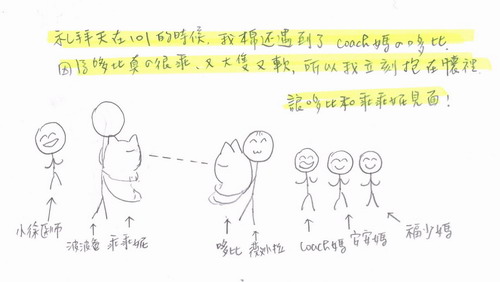 礼拜天在101的時候，我棉还遇到了coach媽的哆比.
因為哆比真的很乖、又大隻又軟，所以我立刻抱在懷裡.
讓哆比和乖乖妮見面！
小徐医师
波波爸
乖乖妮
哆比
薇外拉
coach媽
安安媽
福少媽